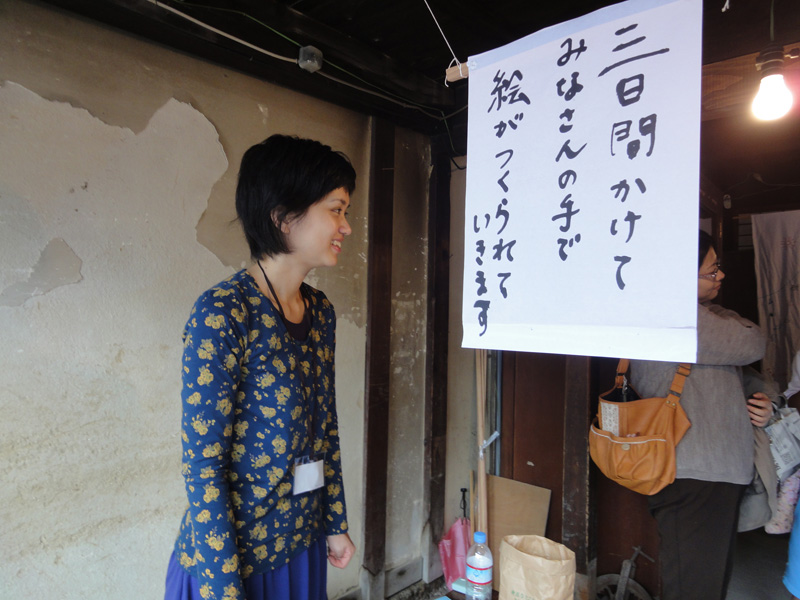 三日間かけて
みなさんの手で
絵がつくられて
いきます